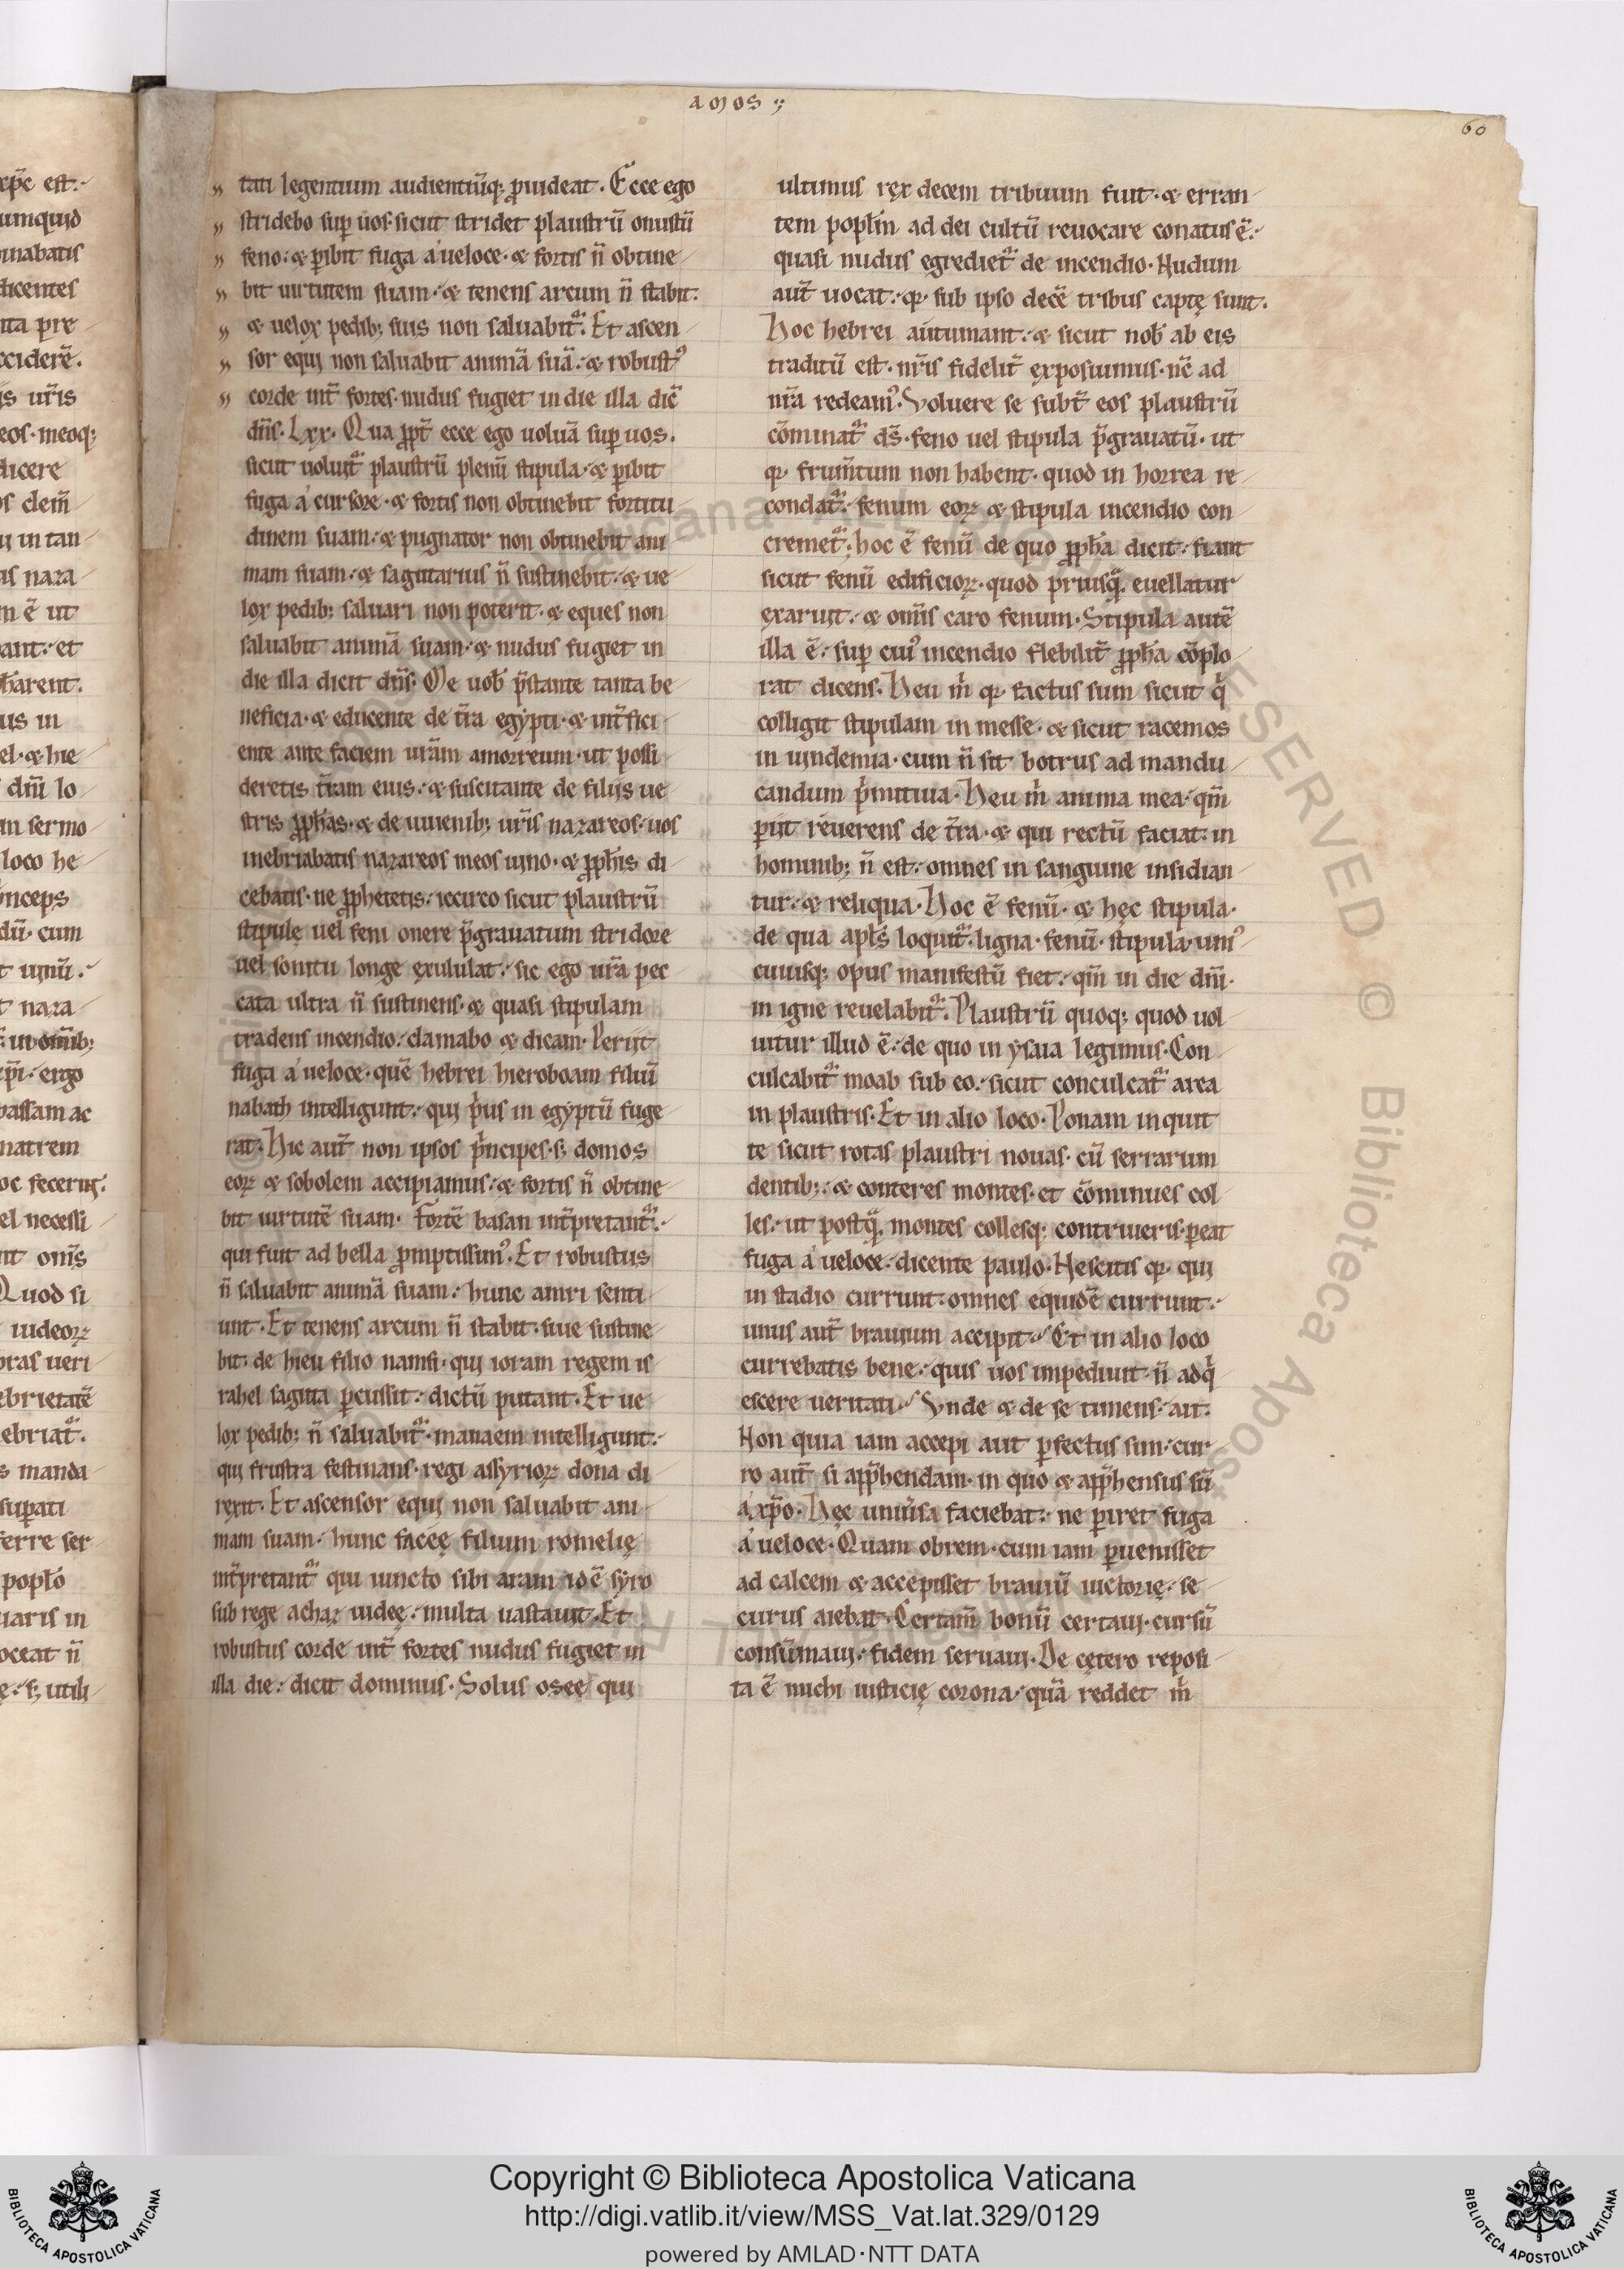 amos ;
60
tati legentium audientiūq; ꝓuideat. Ecce ego
stridebo suꝑ uos. sicut stridet plaustrū onustū
feno. & ꝑibit fuga a ueloce. & fortis n̄ obtine
bit uirtutem suam. & tenens arcum n̄ stabit.
& uelox pedib; suis non saluabit᷑. Et ascen
sor equi non saluabit animā suā. & robust᷒
corde int̄ fortes. nudus fugiet in die illa dic̄
dn̄s. Lxx. Qua ꝓpt̄ ecce ego uoluā suꝑ uos.
sicut uoluit᷑ plaustrū plenū stipula. & ꝑibit
fuga a cursore. & fortis non obtinebit fortitu
dinem suam. & pugnator non obtinebit ani
mam suam. & sagittarius n̄ sustinebit. & ue
lox pedib; saluari non poterit. & eques non
saluabit animā suam. & nudus fugiet in
die illa dicit dn̄s. Me uob̄ p̄stante tanta be
neficia. & educente de t̄ra egypti. & int̄fici
ente ante faciem ur̄am amorreum. ut possi
deretis t̄ram eius. & suscitante de filijs ue
stris ꝓph̄as. & de iuuenib; ur̄is nazareos. uos
inebriabatis nazareos meos uino. & ꝓph̄is di
cebatis. ne ꝓphetetis. iccirco sicut plaustrū
stipulę uel feni onere p̄grauatum stridore
uel sonitu longe exululat. sic ego ur̄a pec
cata ultra n̄ sustinens. & quasi stipulam
tradens incendio. clamabo & dicam. Perijt
fuga a ueloce. quē hebrei hieroboam filiū
nabath intelligunt. qui p̓us in egyptū fuge
rat. Hic aut̄ non ipsos p̓ncipes. s; domos
eoꝝ & sobolem accipiamus. & fortis n̄ obtine
bit uirtutē suam. fortē basan int̄pretant᷑.
qui fuit ad bella ꝓmptissim᷒. Et robustus
n̄ saluabit animā suam. hunc amri senti
unt. Et tenens arcum n̄ stabit. siue sustine
bit. de hieu filio namsi. qui ioram regem is
rahel sagitta ꝑcussit. dictū putant. Et ue
lox pedib; n̄ saluabit᷑. manaem intelligunt.
qui frustra festinans. regi assyrioꝝ dona di
rexit. Et ascensor equi non saluabit ani
mam suam. hunc faceę filium romelię
int̄pretant᷑ qui iuncto sibi aram id ē syro
sub rege achaz iudeę. multa uastauit. Et
robustus corde int̄ fortes nudus fugiet in
illa die. dicit dominus. Solus osee qui
ultimus rex decem tribuum fuit. & erran
tem popl̄m ad dei cultū reuocare conatus ē.
quasi nudus egrediet᷑ de incendio. Nudum
aut̄ uocat. qꝛ sub ipso decē tribus captę sunt.
Hoc hebrei autumant. & sicut nob̄ ab eis
traditū est. nr̄is fidelit̄ exposuimus. nc̄ ad
nr̄a redeam᷒. Voluere se subt̄ eos plaustrū
cōminat᷑ ds̄. feno uel stipula p̄grauatū. ut
qꝛ frum̄tum non habent. quod in horrea re
condat᷑. fenum eoꝝ & stipula incendio con
cremet᷑. hoc ē fenū de quo ꝓph̄a dicit. fiant
sicut fenū edificioꝝ. quod priusq̄ euellatur
exaruit. & om̄is caro fenum. Stipula autē
illa ē. suꝑ cui᷒ incendio flebilit̄ ꝓph̄a cōplo
rat dicens. Heu m̓ qꝛ factus sum sicut q̓
colligit stipulam in messe. & sicut racemos
in uindemia. cum n̄ sit botrus ad mandu
candum p̓mitiua. Heu m̓ anima mea. qm̄
ꝑijt reuerens de t̄ra. & qui rectū faciat. in
hominib; n̄ est. omnes in sanguine insidian
tur. & reliqua. Hoc ē fenū. & hęc stipula.
de qua apl̄s loquit᷑. ligna. fenū. stipula. uni᷒
cuiusq; opus manifestū fiet. qm̄ in die dn̄i.
in igne reuelabit᷑. Plaustrū quoq; quod uol
uitur illud ē. de quo in ysaia legimus. Con
culcabit᷑ moab sub eo. sicut conculcat᷑ area
in plaustris. Et in alio loco. Ponam inquit
te sicut rotas plaustri nouas. cū serrarum
dentib;. & conteres montes. et cōminues col
les. ut postq̄ montes collesq; contriueris. ꝑeat
fuga a ueloce. dicente paulo. Nescitis qꝛ qui
in stadio currunt. omnes equidē currunt.
unus aut̄ brauium accipit. Et in alio loco
currebatis bene. quis uos impediuit. n̄ adq̓
escere ueritati. Vnde & de se timens. ait.
Non quia iam accepi aut ꝑfectus sim. cur
ro aut̄ si app̄hendam. in quo & app̄hensus sū
a xp̄o. Hęc uniu̓sa faciebat. ne ꝑiret fuga
a ueloce. Quam obrem. cum iam ꝑuenisset
ad calcem & accepisset brauiū uictorię. se
curus aiebat. Certam̄ bonū certaui. cursū
consūmaui. fidem seruaui. De cętero reposi
ta ē michi iusticię corona. quā reddet m̓
Copyright © Biblioteca Apostolica Vaticana
http://digi.vatlib.it/view/MSS_Vat.lat.329/0129
powered by AMLAD·NTT DATA
BIBLIOTECA APOSTOLICA VATICANA
BIBLIOTECA APOSTOLICA VATICANA